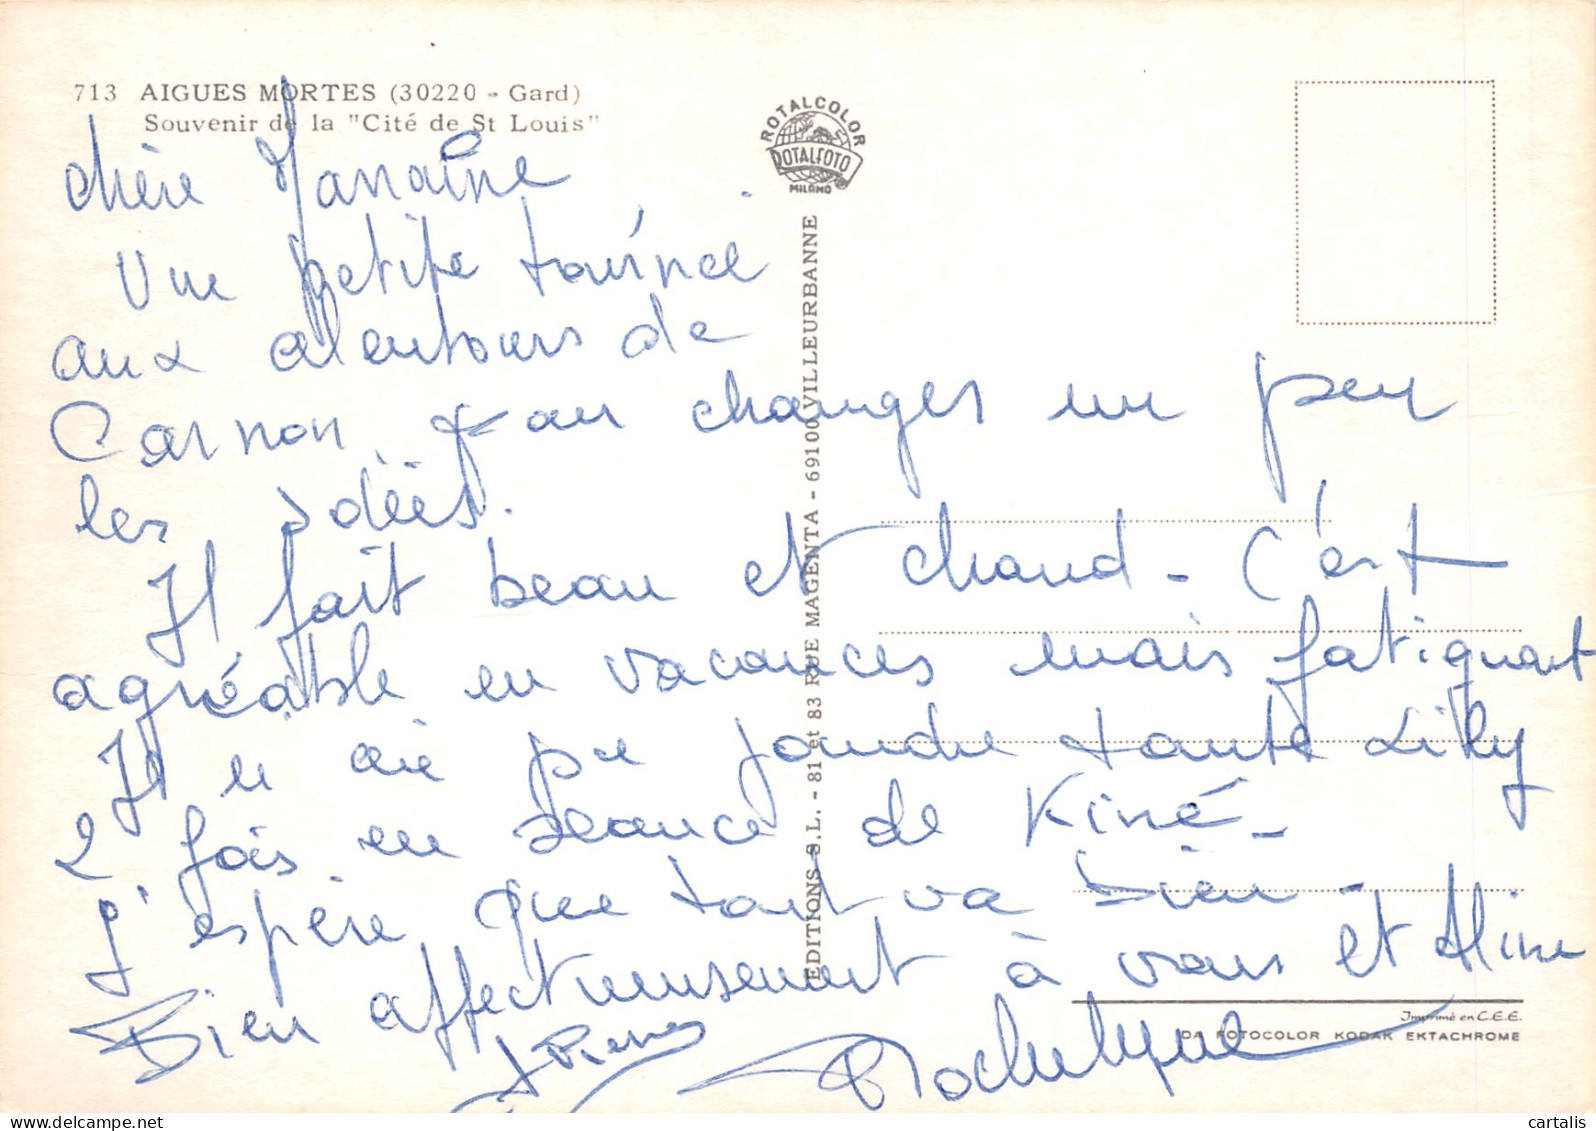 713 AIGUES MORTES (30220 - Gard)
Souvenir de la "Cité de St Louis"
ROTALCOLOR
ROTALFOTO
MILANO
EDITIONS S.L. - 81 et 83 RUE MAGENTA - 69100 VILLEURBANNE
chère
Une petite tournée
aux alentours de
Carnon, changer un peu
les idées.
Il fait beau et chaud - C'est
agréable en vacances mais fatiguant
Je n'ai pu joindre tante Lily
2 fois en séance de Kiné -
J'espère que tout va bien -
Bien affectueusement à vous et Aline
Imprimé en C.E.E.
DA FOTOCOLOR KODAK EKTACHROME
cartalis
www.delcampe.net